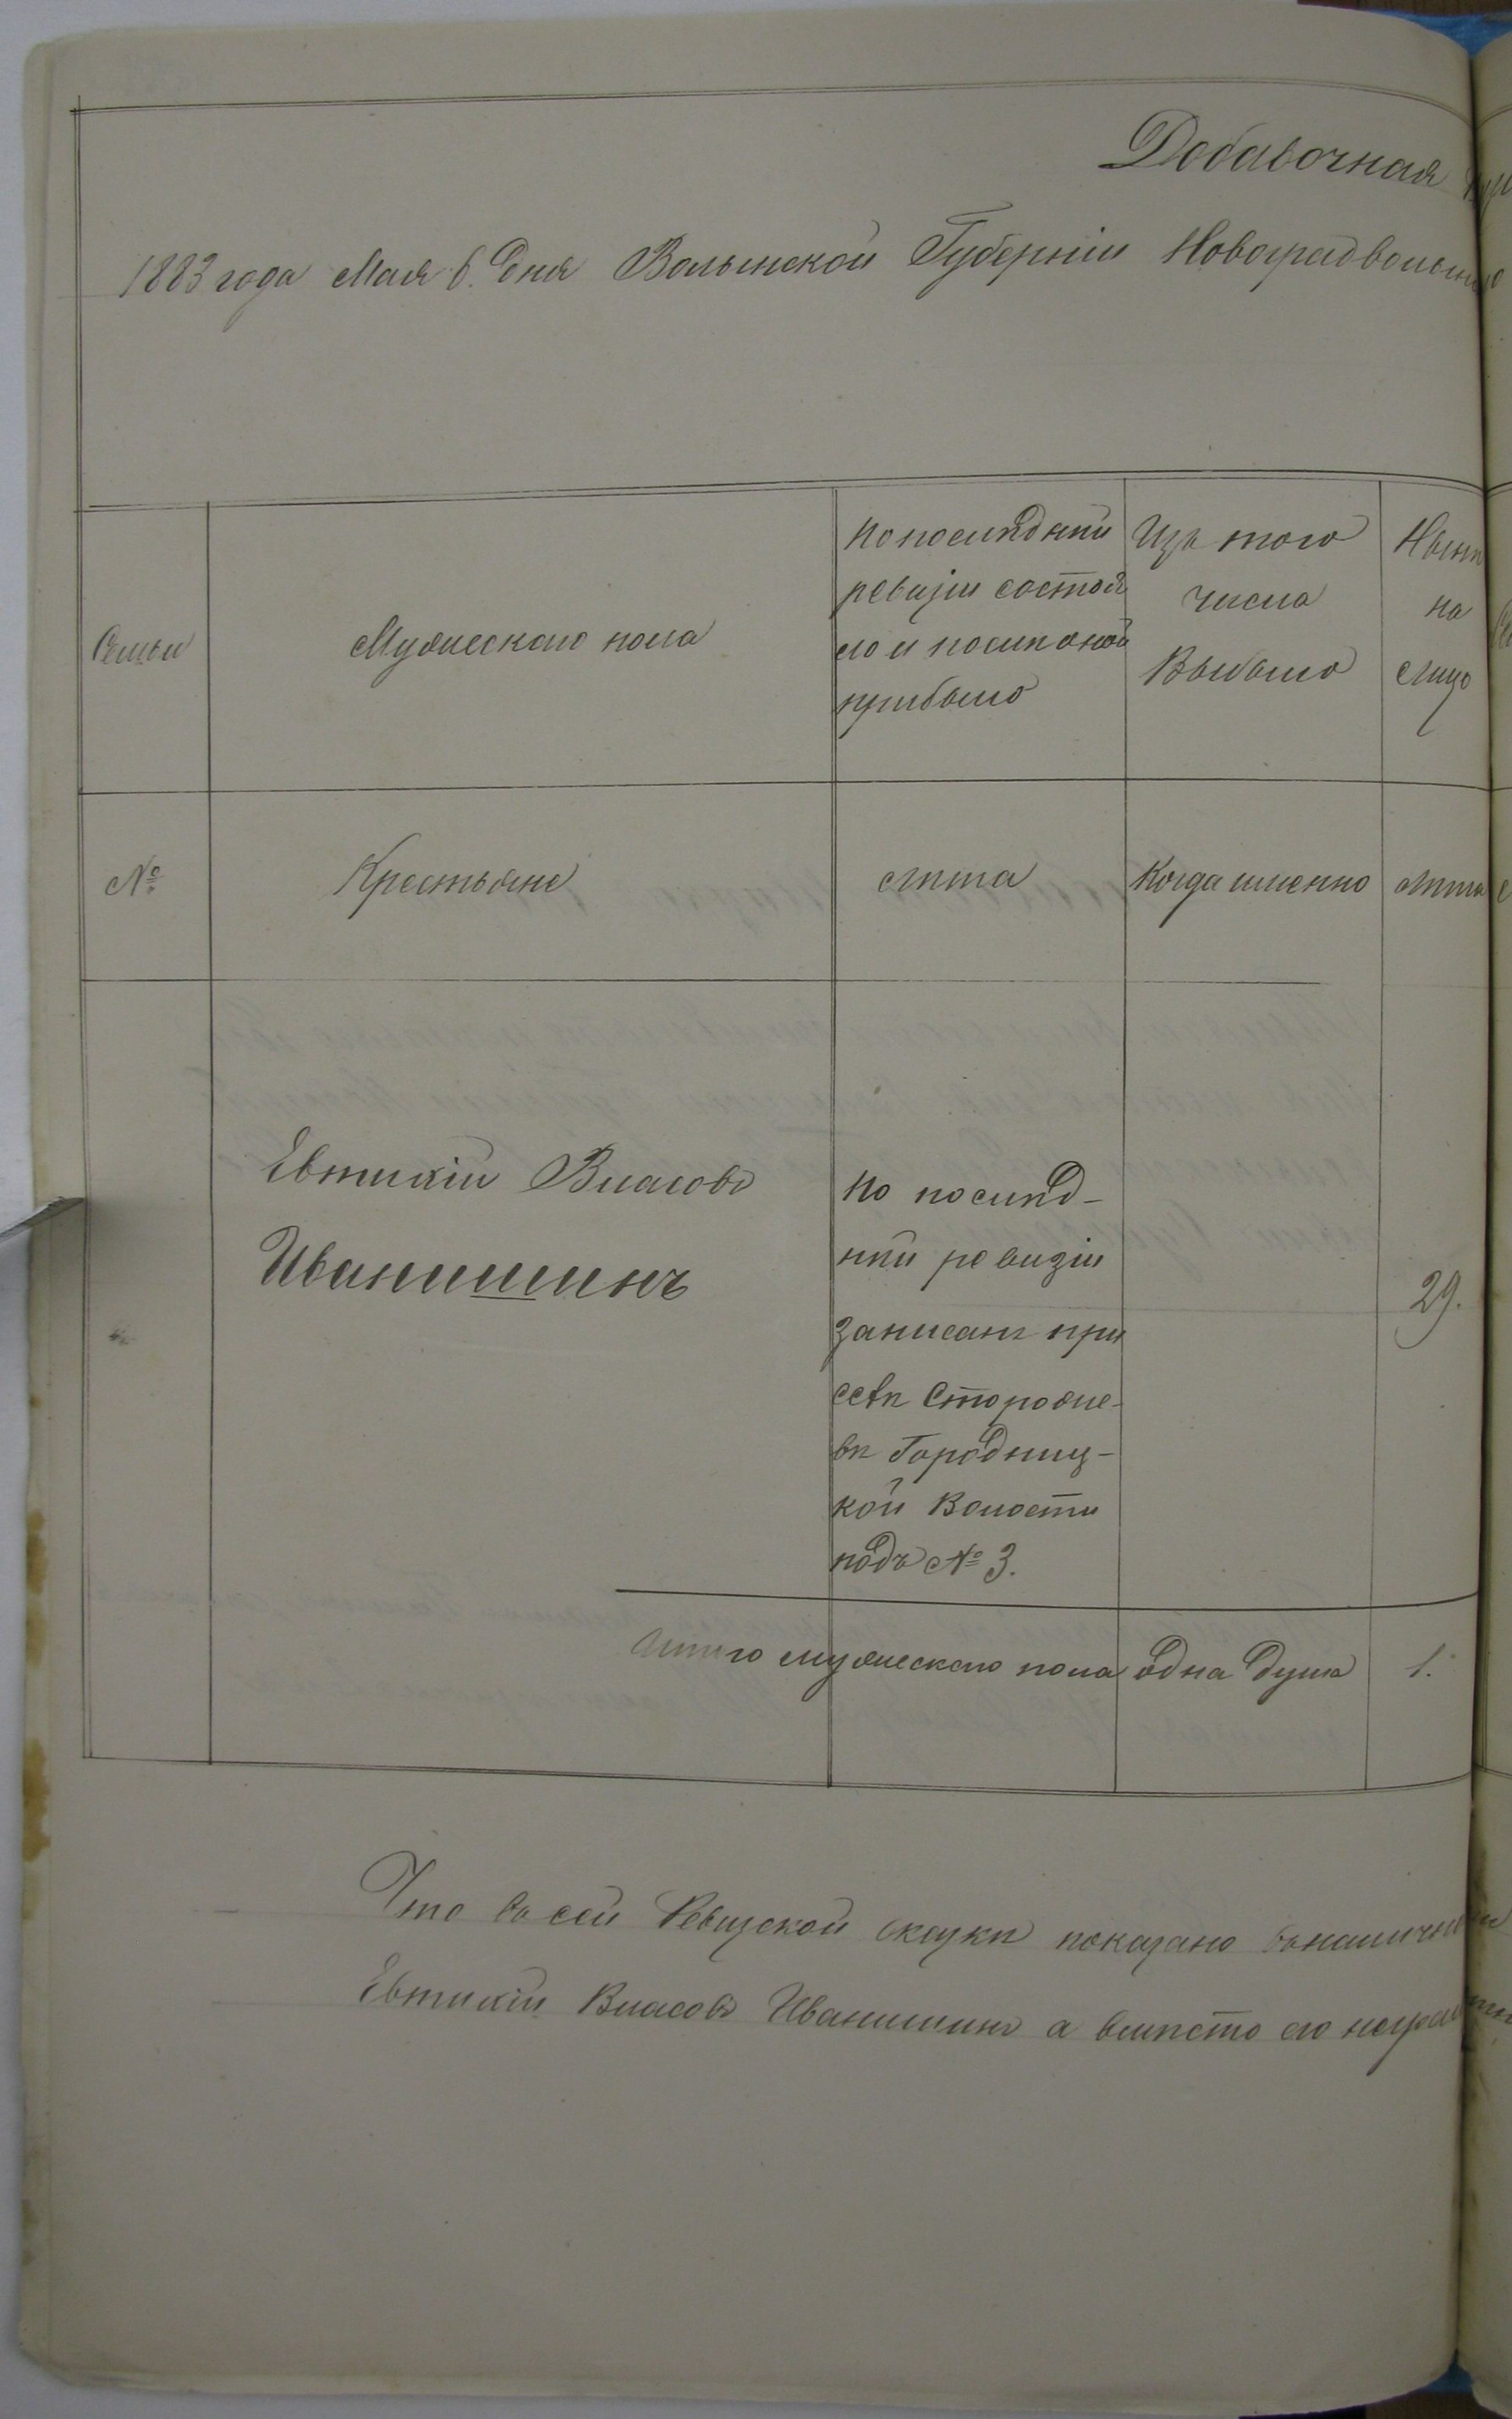 Добавочная
1883 года Мая 6. дня Волынской Губерніи Новоградволынс
Семьи
Мужескаго пола
По послѣдней
ревизіи состоя
ло и послѣ оной
прибыло
Изъ того
числа
Выбыло
Нынѣ
на
лицо
№
Крестьяне
лѣта
Когда именно
лѣта
Евтихій Власовъ
Иванишинъ
По послѣд-
ней ревизіи
записанъ при
селѣ Сторože-
вѣ Городниц-
кой Волости
подъ № 3.
29.
Итого мужескаго пола одна душа 1.
Что въ сей Ревизской сказкѣ показано въ наличн
Евтихій Власовъ Иванишинъ а вмѣсто его